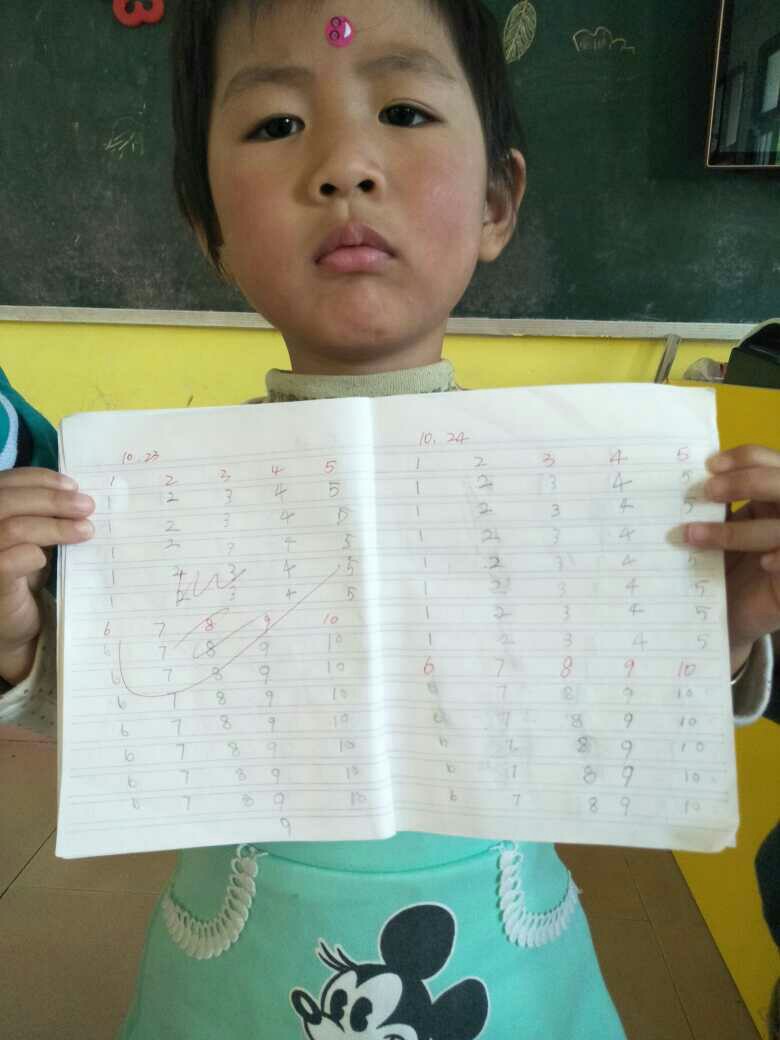 10.23
1 2 3 4 5
1 2 3 4 5
1 2 3 4 5
1 2 3 4 5
1 2 3 4 5
1 2 3 4 5
6 7 8 9 10
6 7 8 9 10
6 7 8 9 10
6 7 8 9 10
6 7 8 9 10
6 7 8 9 10
6 7 8 9 10
6 7 8 9 10
9
10.24
1 2 3 4 5
1 2 3 4 5
1 2 3 4 5
1 2 3 4 5
1 2 3 4 5
1 2 3 4 5
1 2 3 4 5
1 2 3 4 5
6 7 8 9 10
6 7 8 9 10
6 7 8 9 10
6 7 8 9 10
6 7 8 9 10
6 7 8 9 10